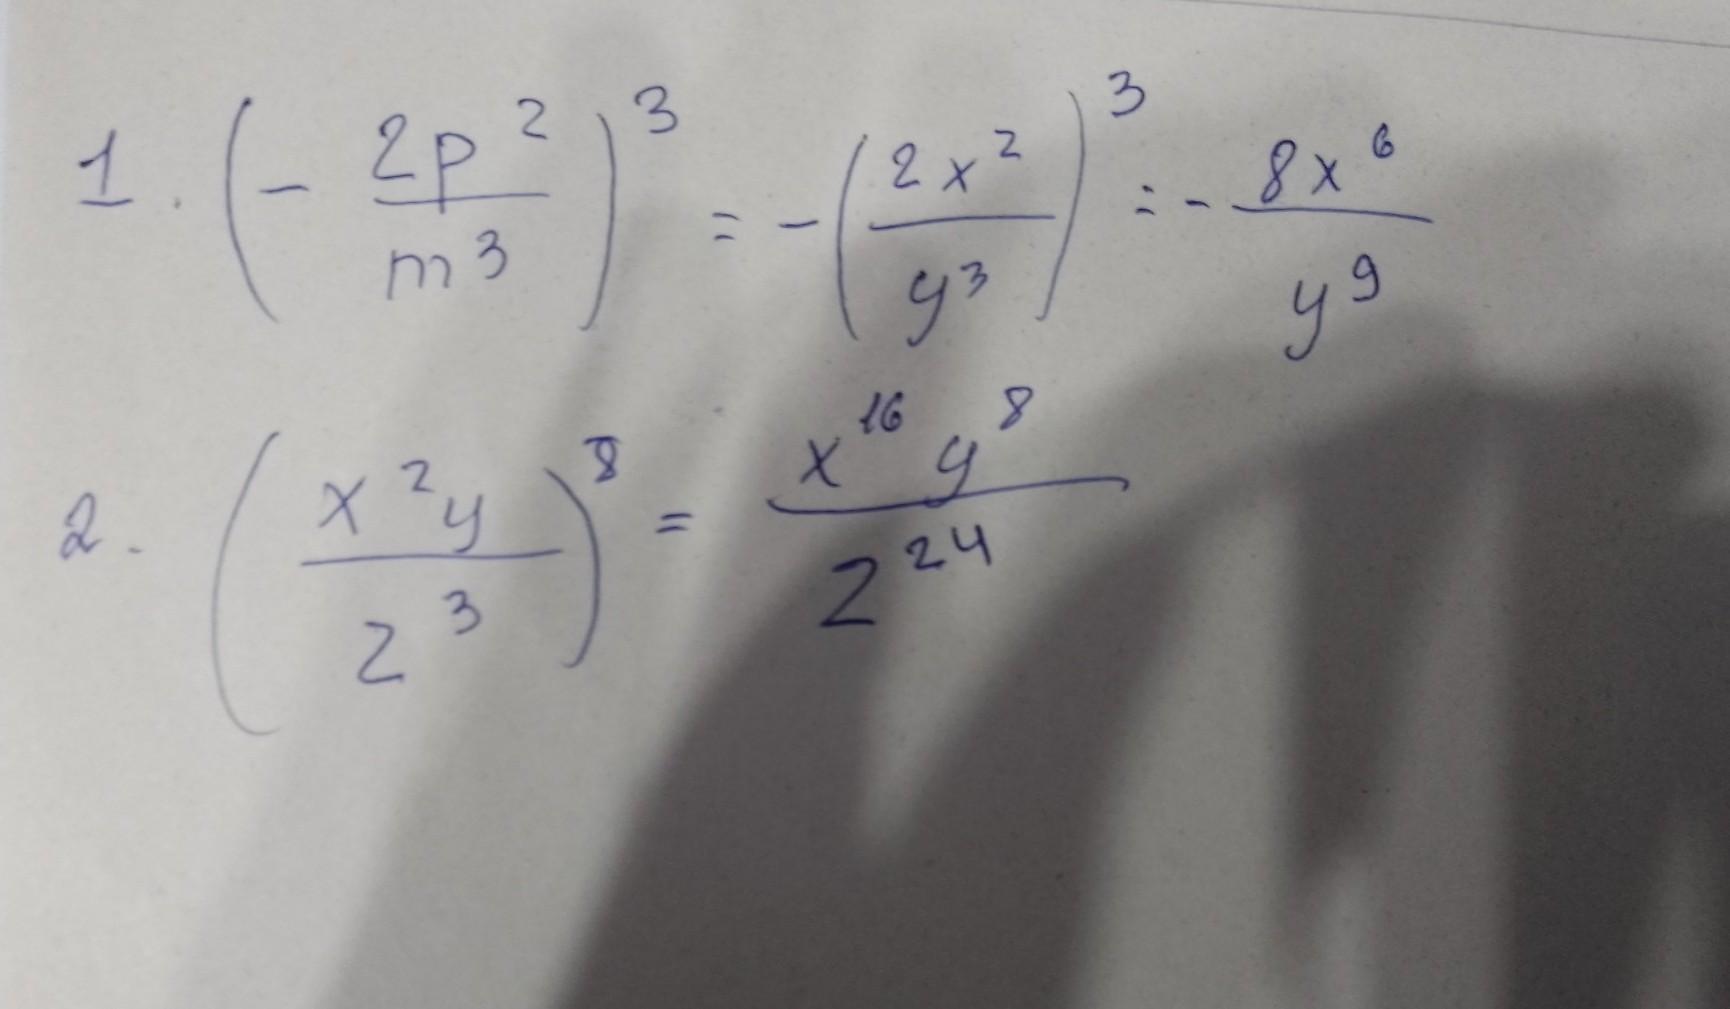 1. (- 2p² / m³)³ = -(2x² / y³)³ = - 8x⁶ / y⁹
2. (x²y / z³)⁸ = x¹⁶ y⁸ / z²⁴